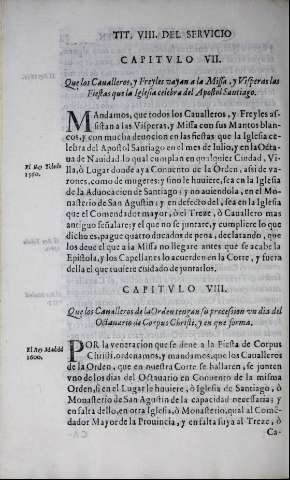 TIT. VIII. DEL SERVICIO
CAPITVLO VII.
Que los Caualleros, y Freyles vayan a la Missa, y Visperas las
Fiestas que la Iglesia celebra del Apostol Santiago.
MAndamos, que todos los Caualleros, y Freyles as-
sistan a las Visperas, y Missa con sus Mantos blan-
cos, y con mucha deuocion en las fiestas que la Iglesia ce-
lebra del Apostol Santiago en el mes de Iulio, y en la Octa-
El Rey Toledo
1560.
ua de Nauidad. lo qual cumplan en qualquier Ciudad, Vi-
lla, ò Lugar donde aya Conuento de la Orden, assi de va-
rones, como de mugeres: y sino le huuiere, sea en la Iglesia
de la Aduocacion de Santiago: y no auiendola, en el Mo-
nasterio de San Agustin: y en defecto del, sea en la Iglesia
que el Comendador mayor, ò el Treze, ò Cauallero mas
antiguo señalare: y el que no se juntare, y cumpliere lo que
dicho es, pague quatro ducados de pena, declarando, que
los deue el que a la Missa no llegare antes que se acabe la
Epistola, y los Capellanes lo acuerden en la Corte, y fuera
della el que tuuiere cuidado de juntarlos.
CAPITVLO VIII.
Que los Caualleros de la Orden tengan su procession vn dia del
Octauario de Corpus Christi, y en que forma.
El Rey Madrid
1600.
POR la veneracion que se deue a la Fiesta de Corpus
Christi, ordenamos, y mandamos, que los Caualleros
de la Orden, que en nuestra Corte se hallaren, se junten
vno de los dias del Octauario en Conuento de la misma
Orden, si en el Lugar le huuiere, ò Iglesia de Santiago, ò
Monasterio de San Agustin de la capacidad necessaria; y
en falta dello, en otra Iglesia, ò Monasterio, qual al Comē-
dador Mayor de la Prouincia, y en falta suya al Treze, ò
Ca-